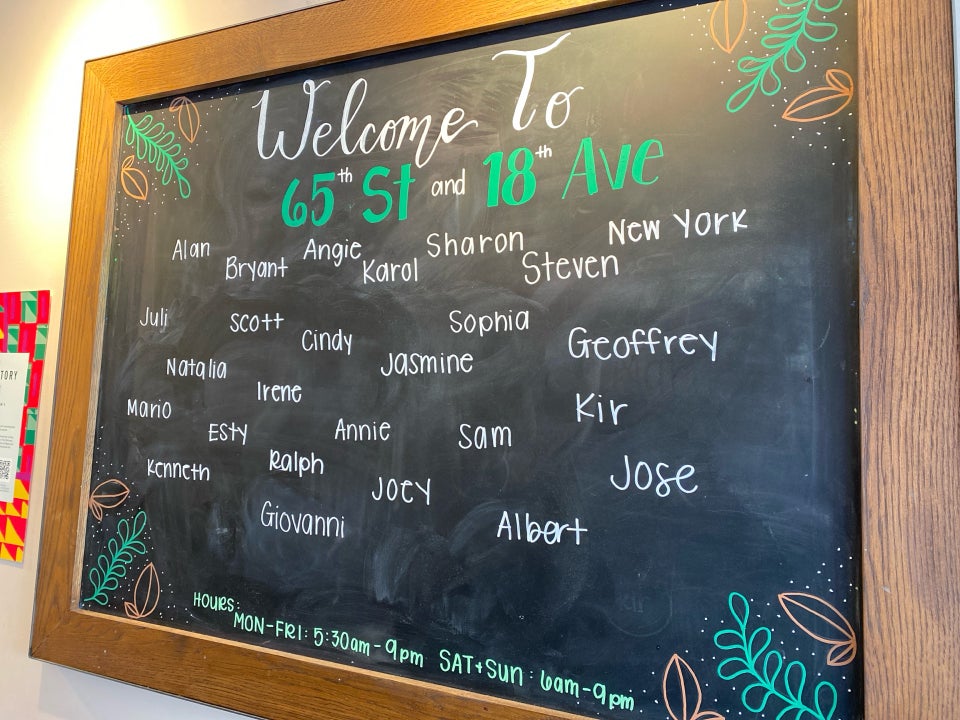 Welcome To
65th St and 18th Ave
Alan Bryant Angie Karol Sharon Steven New York
Juli Scott Cindy Sophia
Natalia Irene Jasmine Geoffrey
Mario Esty Annie Sam Kir
Kenneth Ralph Joey Jose
Giovanni Albert
Hours:
MON-FRI: 5:30am-9pm SAT+SUN: 6am-9pm
TORY